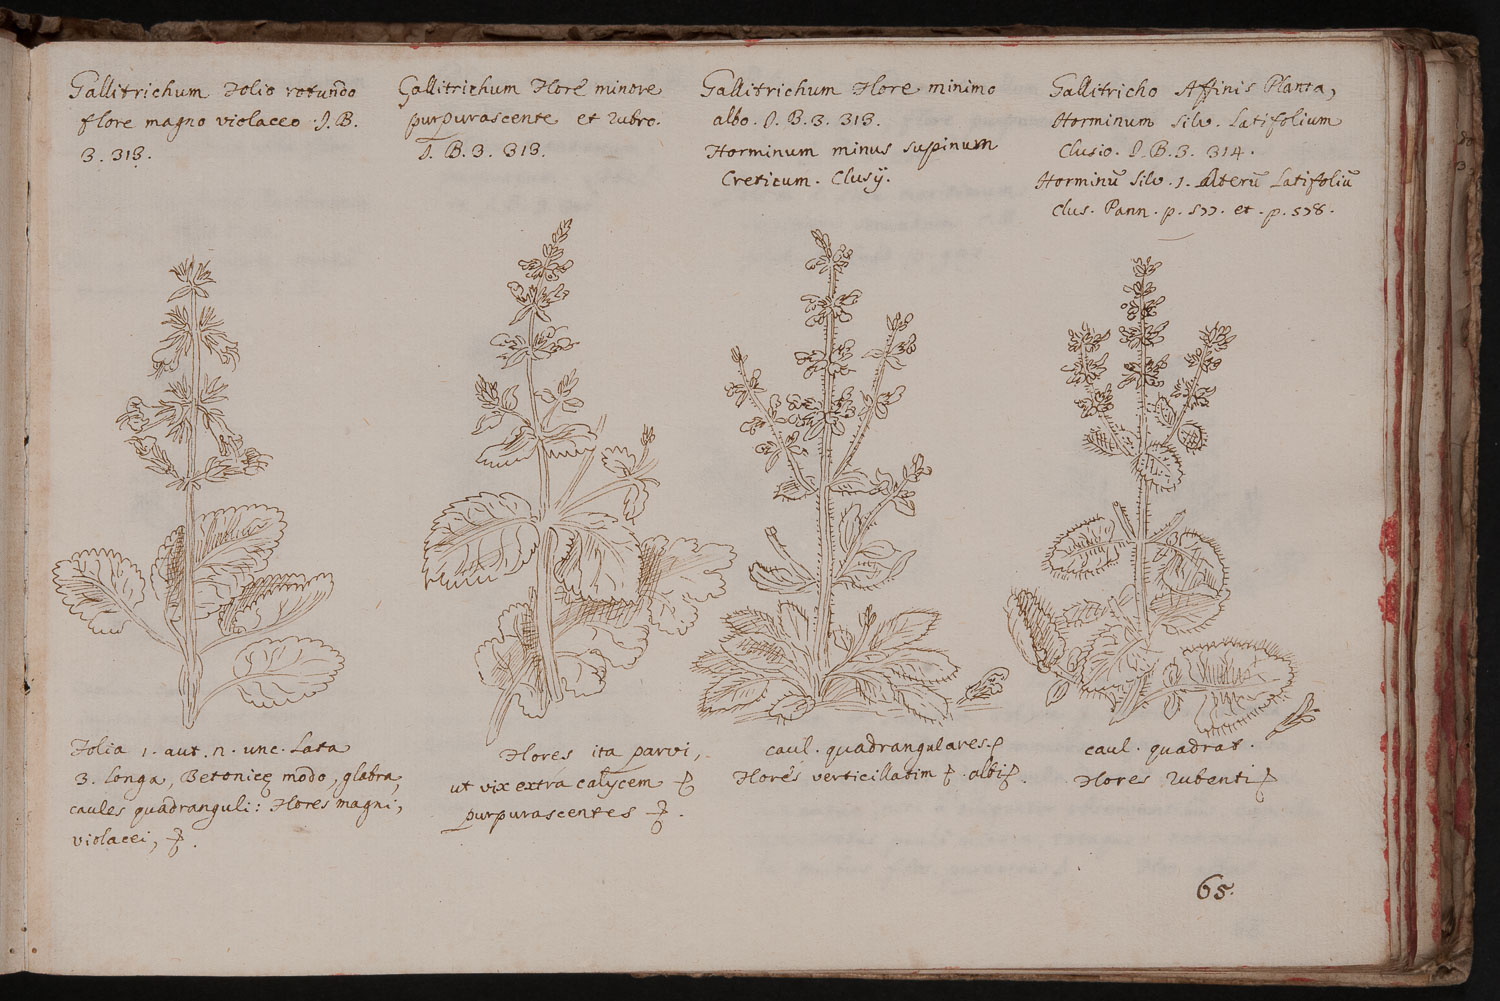 Gallitrichum Folio rotundo
flore magno violaceo . J. B.
3. 313.
Gallitrichum Flore minore
purpurascente et rubro.
J. B. 3. 313.
Gallitrichum Flore minimo
albo. J. B. 3. 313.
Horminum minus supinum
Creticum. Clusÿ.
Gallitricho Affinis Planta,
Horminum silv. Latifolium
Clusio. J. B. 3. 314.
Horminū silv. 1. alterū Latifoliū
Clus. Pann. p. 577. et. p. 578.
Folia 1. aut. 11. unc. Lata
3. Longa, Betonicę modo, glabra,
caules quadranguli: Flores magni,
violacei,
Flores ita parvi,
ut vix extra calycem
purpurascentes
caul. quadrangulares.
Flores verticillatim albi
caul. quadrat.
Flores rubenti
65.